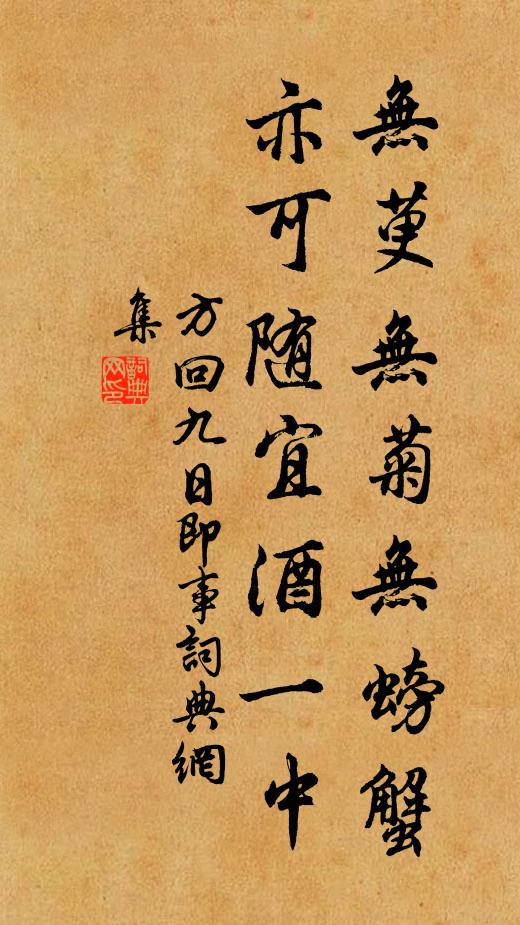 無茰無菊無螃蟹
亦可随宜酒一中
方回九日即事詞典網
集
詞典
网印